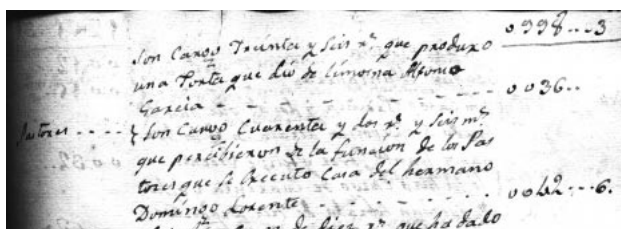 0998---3
Son Cargo Treinta y Seis r.s que produxo
una Torta que dió de limosna Alfonso
Garcia - - - - - - - - 0036..
Pastores - - - - { Son Cargo Cuarenta y dos r.s y Seis m.s
que percibieron de la funcion de los Pas
tores que se Executo Casa del hermano
Domingo Lorente - - - - - - - 0042---6.
de diez r.s que ha dado